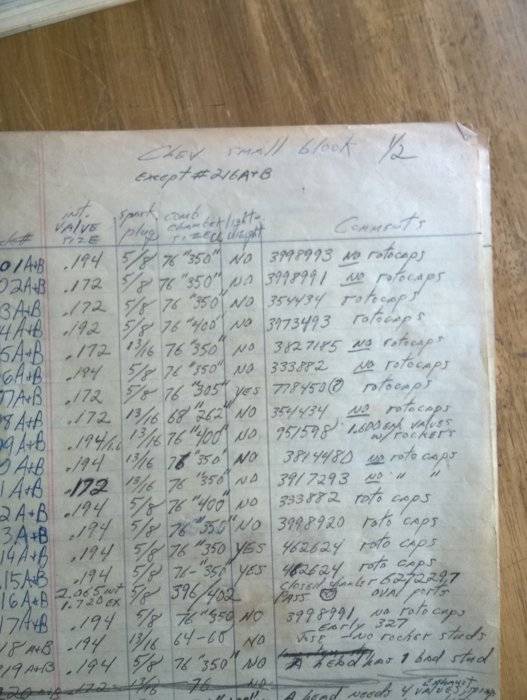 CHEV small block 1/2
EXCEPT #216A+B
INT. VALVE SIZE spark plug comb chamber SIZE light-weight Comments
01A+B .194 5/8 76 "350" NO 3998993 NO rotocaps
02A+B .172 5/8 76 "350" NO 3998991 NO rotocaps
3A+B .172 5/8 76 "350" NO 354434 rotocaps
4A+B .192 5/8 76 "400" NO 3973493 rotocaps
5A+B .172 13/16 76 "350" NO 3827185 NO rotocaps
6A+B .194 5/8 76 "350" NO 333882 NO rotocaps
7A+B .172 5/8 76 "305" YES 778450 rotocaps
8A+B .172 13/16 68 "262" NO 354434 NO rotocaps
9A+B .194/1.6 13/16 76 "400" NO 951598 1.600 EX VALVES w/rockers
0A+B .194 13/16 76 "350" NO 3814480 NO roto caps
1A+B .172 13/16 76 "350" NO 3917293 NO " "
2A+B .194 5/8 76 "400" NO 333882 roto caps
3A+B .194 5/8 76 "350" NO 3998920 roto caps
14A+B .194 5/8 76 "350 YES 462624 roto caps
15A+B .194 5/8 76-"350" YES 462624 roto caps
16A+B 2.065 INT 1.720 EX 5/8 396/402 closed chamber 6272297 PASS oval ports
17A+B .194 5/8 76 "350 NO 3998991 no rotocaps
18A+B .194 13/16 64-60 NO EARLY 327 - NO rocker studs
219A+B .194 5/8 76 "350" NO A head has 1 bad stud
.172 13/16 76 NO
A head needs 4 exhaust valve springs